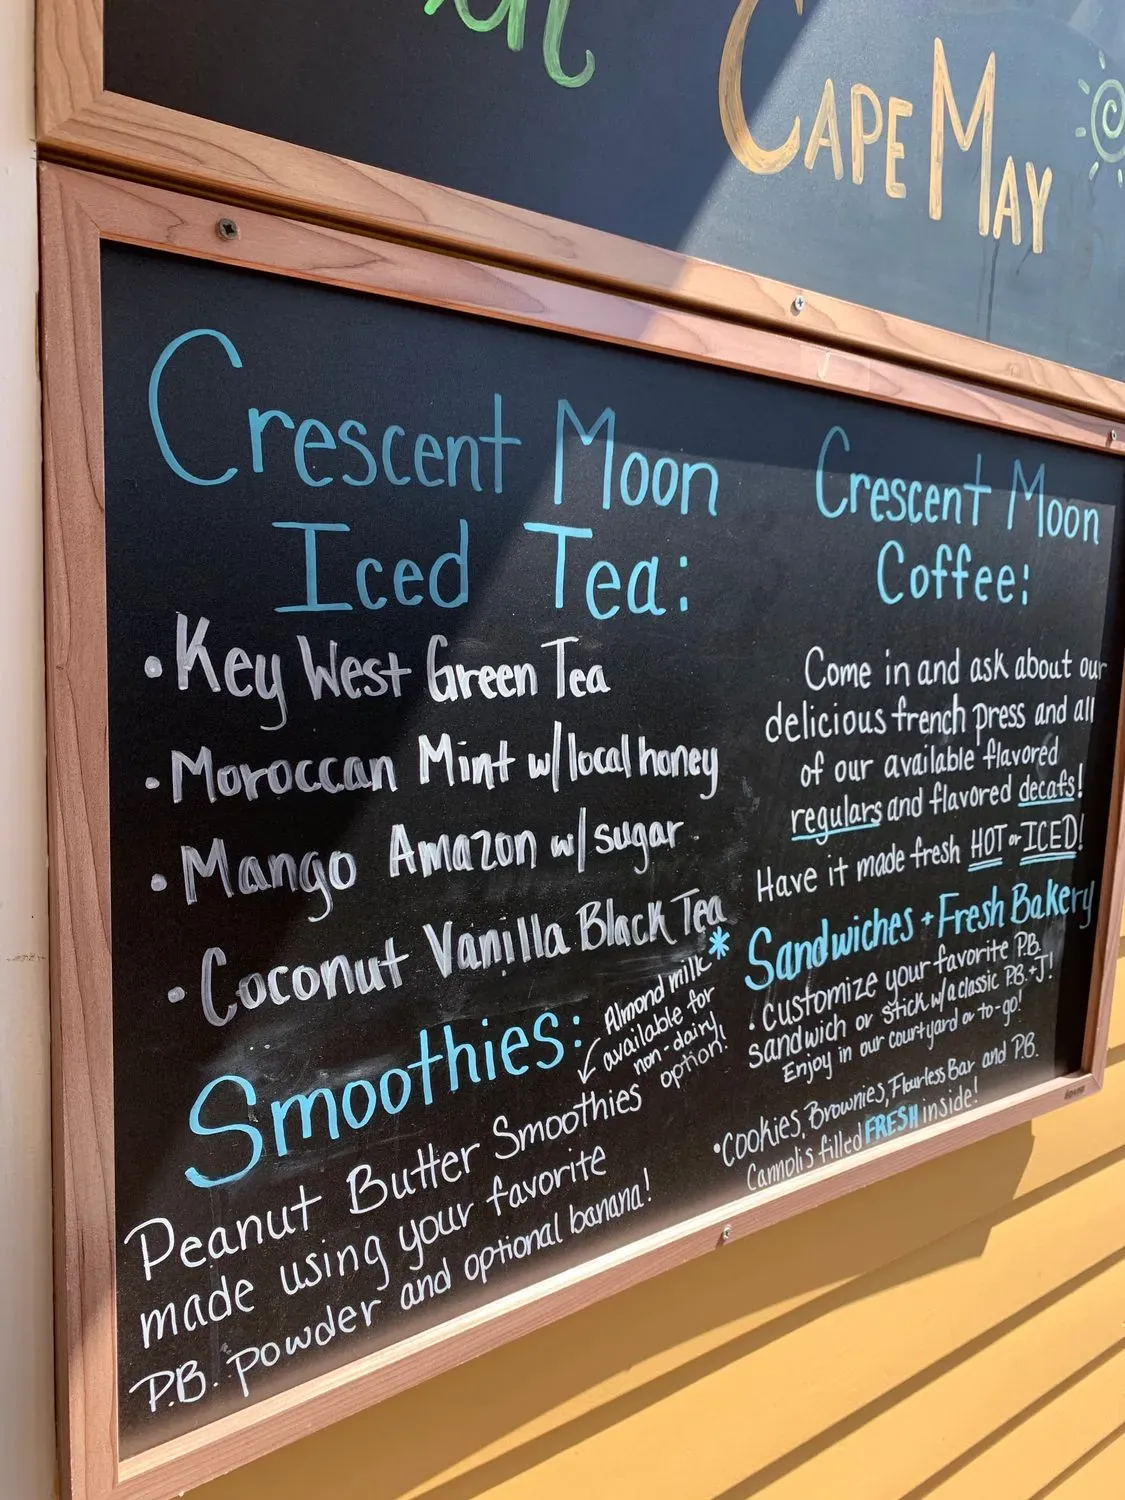 Cape May
Crescent Moon
Iced Tea:
• Key West Green Tea
• Moroccan Mint w/local honey
• Mango Amazon w/sugar
• Coconut Vanilla Black Tea
Smoothies:
* Almond milk
available for
non-dairy
option!
Peanut Butter Smoothies
made using your favorite
P.B. powder and optional banana!
Crescent Moon
Coffee:
Come in and ask about our
delicious french press and all
of our available flavored
regulars and flavored decafs!
Have it made fresh HOT or ICED!
Sandwiches + Fresh Bakery
• Customize your favorite P.B.
sandwich or stick w/a classic P.B.+J!
Enjoy in our courtyard or to-go!
• Cookies, Brownies, Flourless Bar and P.B.
Cannolis filled FRESH inside!